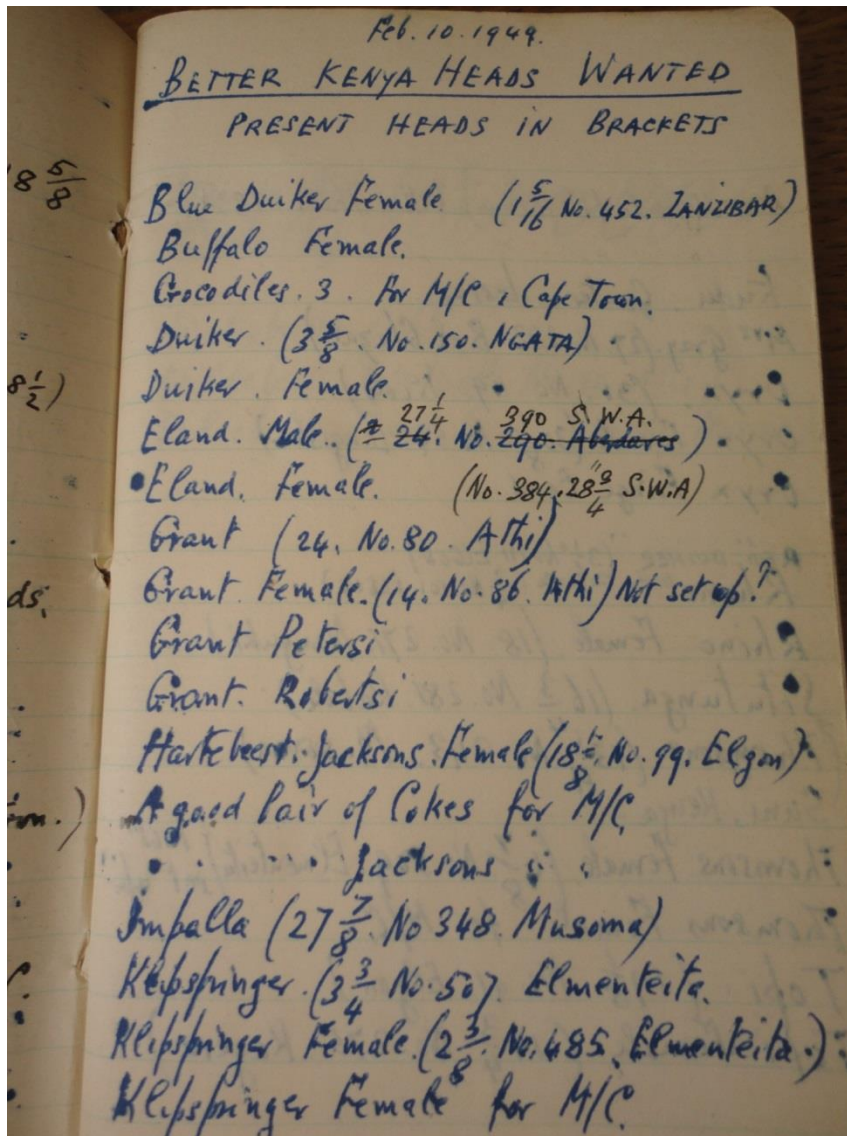 Feb. 10. 1949.
BETTER KENYA HEADS WANTED
PRESENT HEADS IN BRACKETS
8 5/8
Blue Duiker Female (1 5/16 No. 452. ZANZIBAR)
Buffalo Female.
Crocodiles. 3. For M/C, Cape Town.
Duiker. (3 5/8. No. 150. NGATA)
8 1/2)
Duiker. Female.
Eland. Male. (27 1/4 24. No. 390 S.W.A. 290. Aberdares)
Eland. Female. (No. 384, 28 3/4" S.W.A)
Grant (24. No. 80. Athi)
ds.
Grant Female. (14. No. 86. Athi) Not set up?
Grant Petersi
Grant. Robertsi
Hartebeest. Jacksons. Female (18 1/8. No. 99. Elgon)
A good Pair of Cokes for M/C.
" " " " Jacksons " "
Impalla (27 7/8. No 348. Musoma)
Klipspringer. (3 3/4 No. 507 Elmenteita.
Klipspringer Female. (2 3/8. No. 485. Elmenteita.)
Klipspringer Female for M/C.